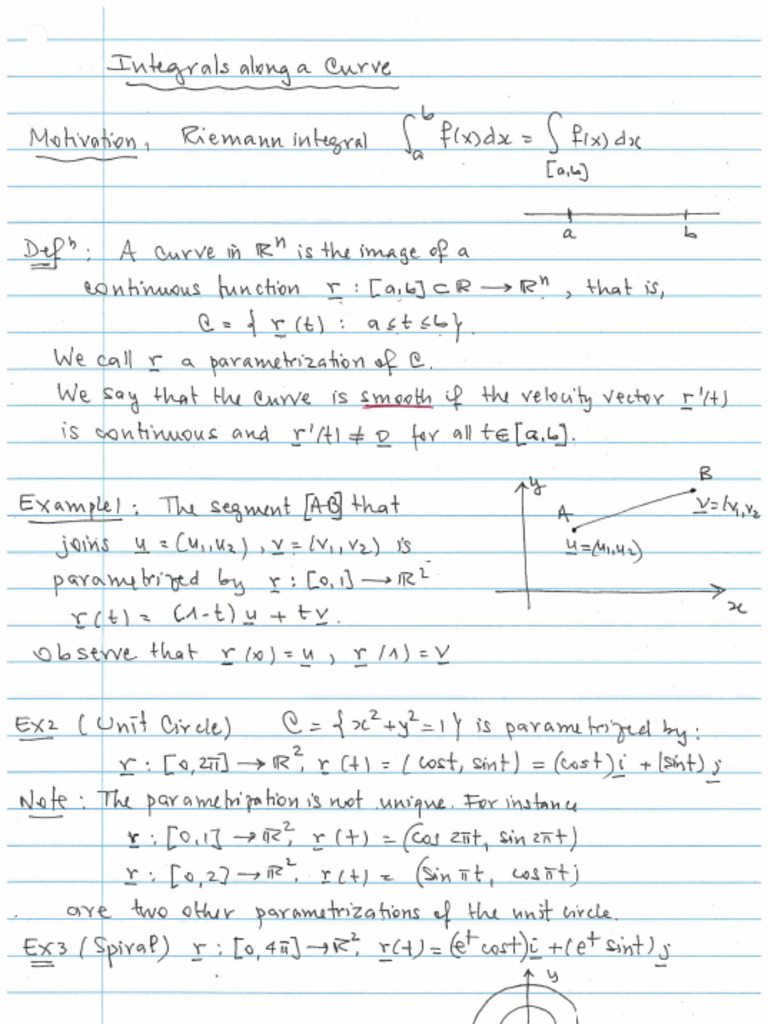 Integrals along a Curve
Motivation, Riemann integral ∫_a^b f(x)dx = ∫_[a,b] f(x) dx
a b
Defⁿ: A curve in ℝⁿ is the image of a
continuous function r : [a,b] ⊂ ℝ → ℝⁿ, that is,
C = { r(t) : a ≤ t ≤ b}.
We call r a parametrization of C.
We say that the curve is smooth if the velocity vector r'(t)
is continuous and r'(t) ≠ 0 for all t ∈ [a,b].
Example1: The segment [AB] that
joins u = (u₁,u₂), v = (v₁,v₂) is
parametrized by r : [0,1] → ℝ²
r(t) = (1-t) u + t v.
observe that r(0) = u, r(1) = v
y
B
v=(v₁,v₂
A
u=(u₁,u₂)
x
Ex2 (Unit Circle) C = {x²+y²=1} is parametrized by:
r : [0,2π] → ℝ², r(t) = (cost, sint) = (cost)i + (sint)j
Note: The parametrization is not unique. For instance
r : [0,1] → ℝ², r(t) = (cos 2πt, sin 2πt)
r : [0,2] → ℝ², r(t) = (sin πt, cos πt)
are two other parametrizations of the unit circle.
Ex3 (Spiral) r : [0,4π] → ℝ², r(t) = (eᵗ cost)i + (eᵗ sint)j
y